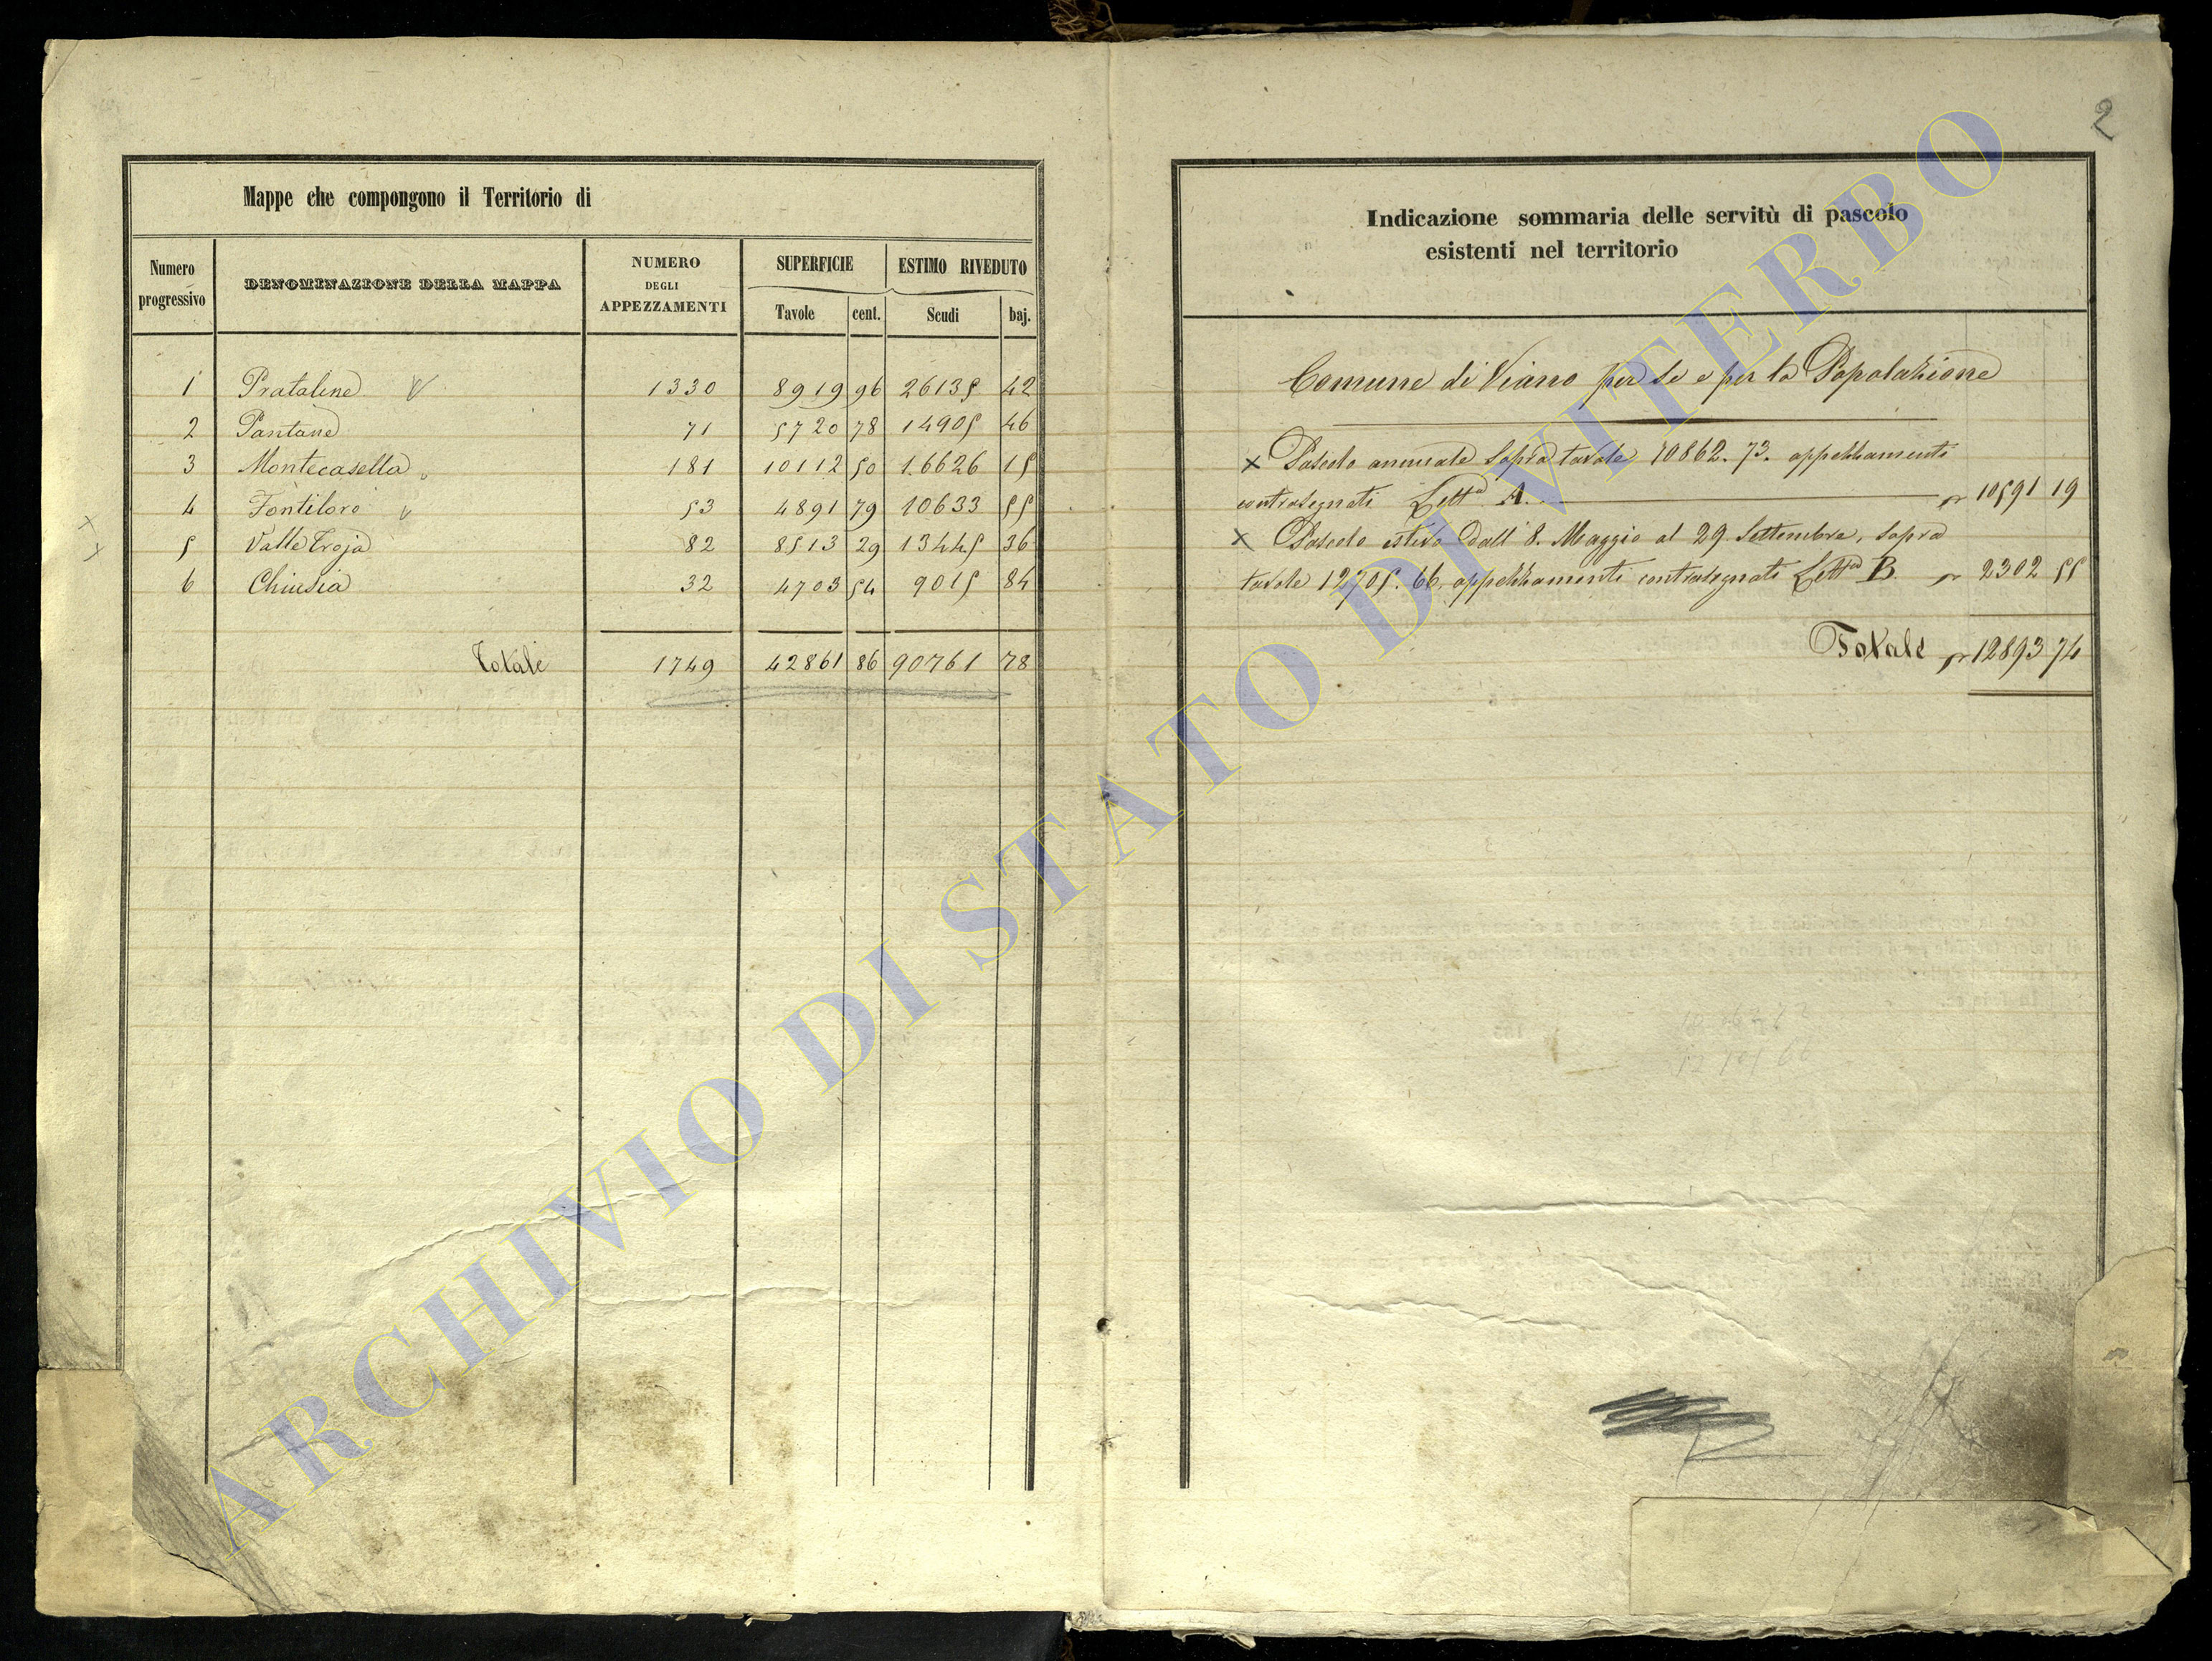 2
Mappe che compongono il Territorio di
Numero progressivo DENOMINAZIONE DELLA MAPPA NUMERO DEGLI APPEZZAMENTI SUPERFICIE ESTIMO RIVEDUTO
Tavole cent. Scudi baj.
1 Pratalene 1330 8919 96 26135 42
2 Pantane 71 5720 78 14905 46
3 Montecasella 181 10112 50 16626 15
4 Fontiloro 53 4891 79 10633 55
5 Valle Troja 82 8513 29 13445 36
6 Chiusia 32 4703 54 9015 84
Totale 1749 42861 86 90761 78
Indicazione sommaria delle servitù di pascolo
esistenti nel territorio
Comune di Viano per se e per la Popolazione
x Pascolo annuale sopra tavole 10862. 73. appezzamenti
contrasegnati Letta A. 10591 19
x Pascolo estivo dall' 8. Maggio al 29 Settembre, sopra
tavole 12705. 66. appezzamenti contrasegnati Letta B. 2302 55
Totale 12893 74
ARCHIVIO DI STATO DI VITERBO